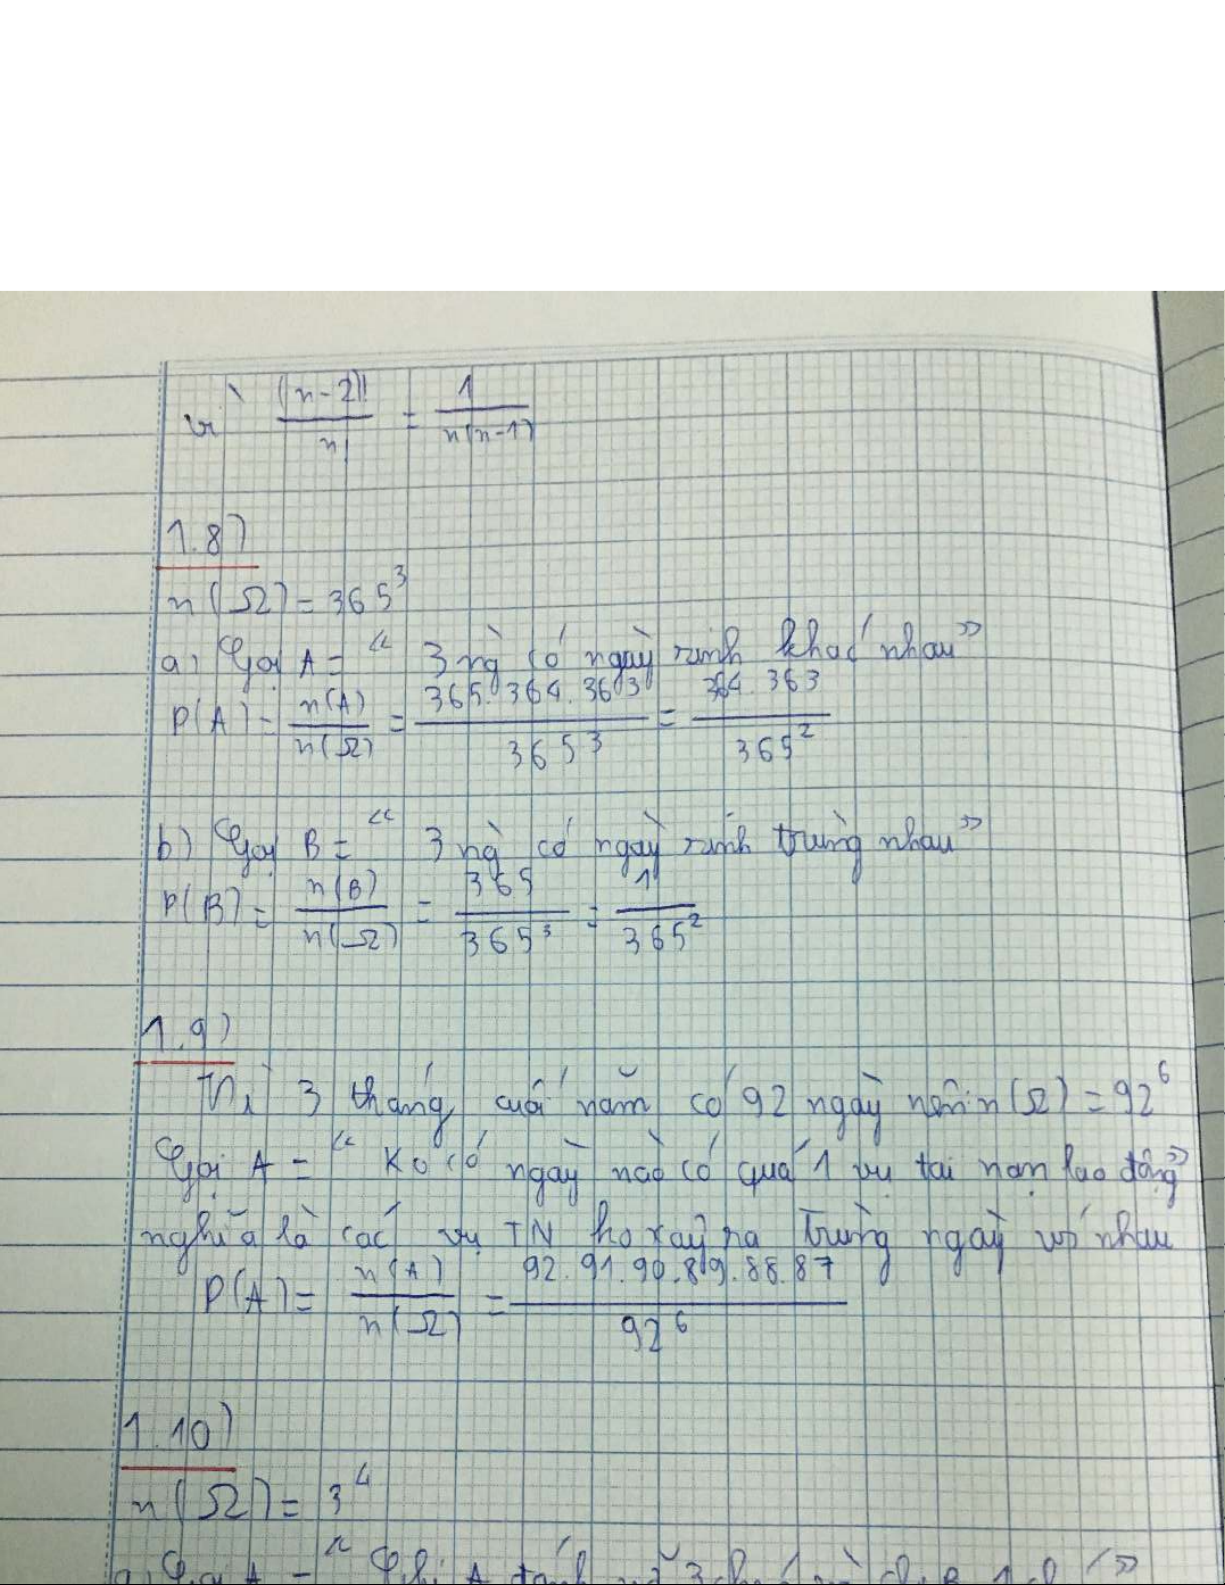 vì (n-2)!/n! = 1/n(n-1)
1.8)
n(Ω) = 365³
a) Gọi A = “ 3 ng có ngày sinh khác nhau”
P(A) = n(A)/n(Ω) = 365.364.363/365³ = 364.363/365²
b) Gọi B = “ 3 ng có ngày sinh trùng nhau”
P(B) = n(B)/n(Ω) = 365/365³ = 1/365²
1.9)
Vì 3 tháng cuối năm có 92 ngày nên n(Ω) = 92⁶
Gọi A = “ Ko có ngày nào có quá 1 vụ tai nạn lao động”
nghĩa là các vụ TN ko xảy ra trùng ngày với nhau
P(A) = n(A)/n(Ω) = 92.91.90.89.88.87/92⁶
1.10)
n(Ω) = 3⁴
a) Gọi A = “